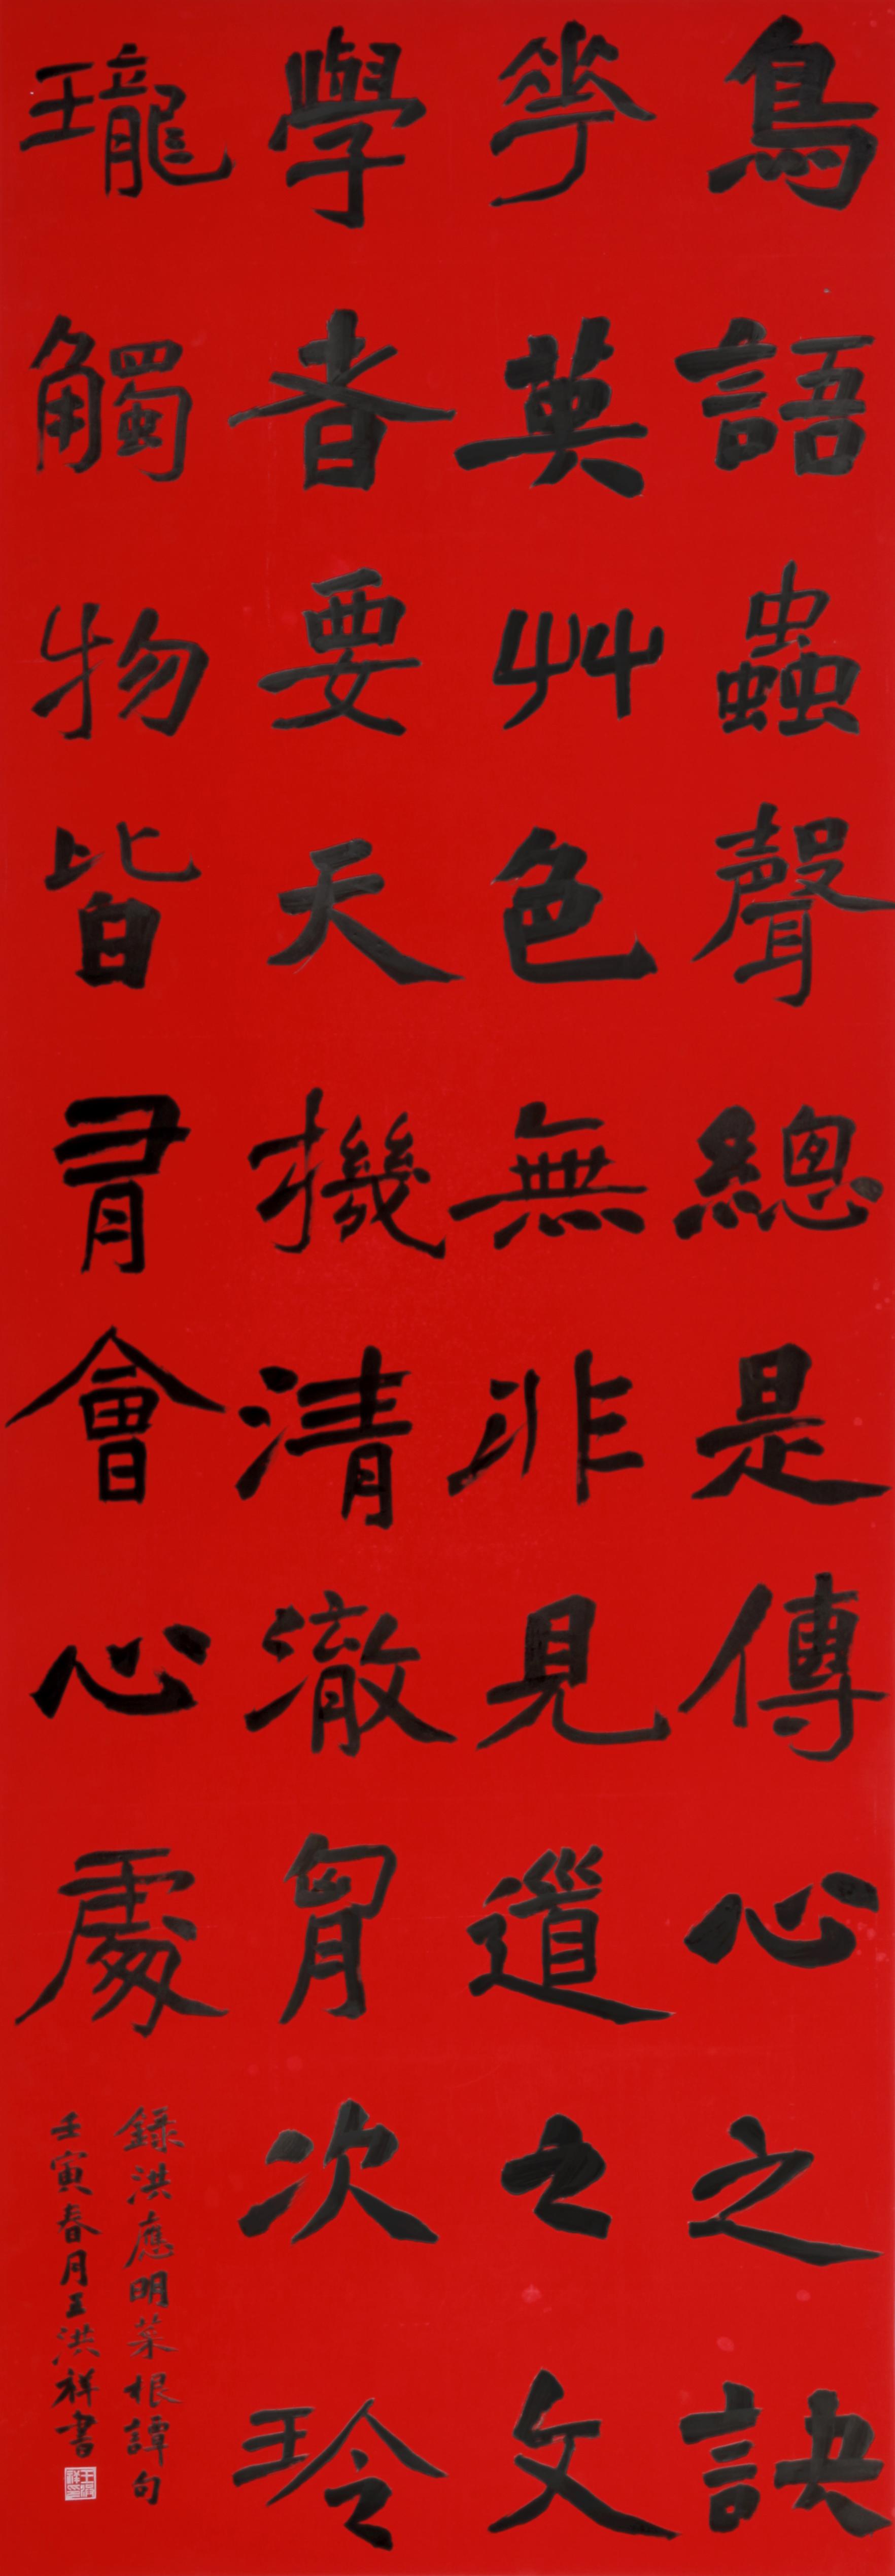 鳥語蟲聲總是傳心之訣
花英艸色無非見道之文
學者要天機清澈胷次玲
瓏觸物皆有會心處
錄洪應明菜根譚句
壬寅春月王洪祥書